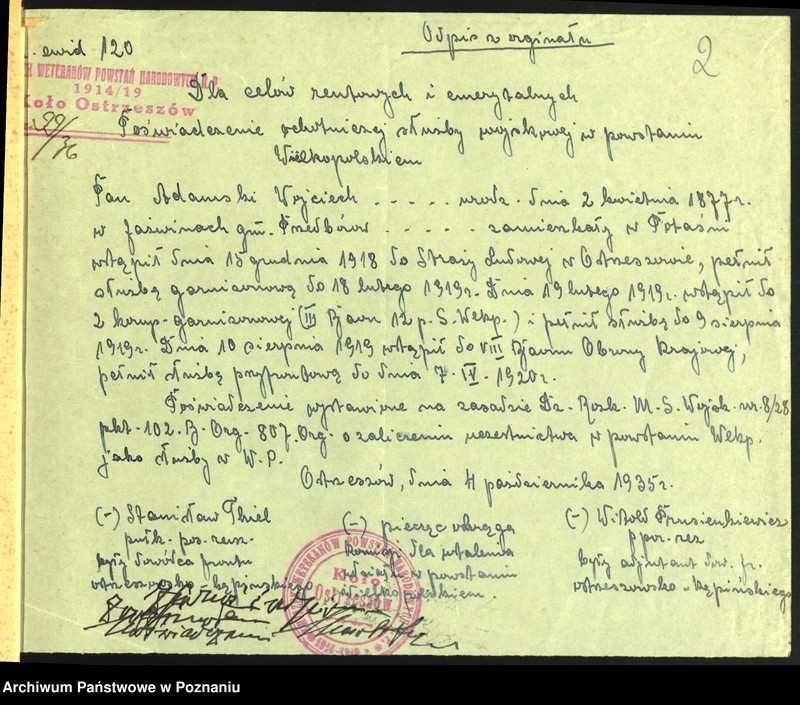 Odpis z orginału
2
. ewid 120
K WETERANÓW POWSTAŃ NARODOWYCH R.P.
1914/19
Koło Ostrzeszów
99/36
Dla celów rentowych i emerytalnych
Poświadczenie ochotniczej służby wojskowej w powstaniu
Wielkopolskiem
Pan Adamski Wojciech - - - - - urodz. dnia 2 kwietnia 1877 r.
w Jaświnach gm. Przedborów - - - - - zamieszkały w Potaśni
wstąpił dnia 15 grudnia 1918 do Straży Ludowej w Ostrzeszowie, pełnił
służbę garnizonową do 18 lutego 1919 r. Dnia 19 lutego 1919 r. wstąpił do
2 komp. garnizonowej (III Bjaon 12 p. S. Wlkp.) i pełnił służbę do 9 sierpnia
1919 r. Dnia 10 sierpnia 1919 wstąpił do VIII Bjaonu Obrony Krajowej,
pełnił służbę przyfrontową do dnia 7. IV. 1920 r.
Poświadczenie wystawione na zasadzie Dz. Rozk. M. S. Wojsk. nr. 8/28
pkt. 102. B. Org. 807. Org. o zaliczeniu uczestnictwa w powstaniu Wlkp.
jako służby w W. P.
Ostrzeszów, dnia 4 października 1935 r.
(-) Stanisław Thiel
pułk. pos. rusz.
były dowódca frontu
ostrzeszowsko-kępińskiego
(-) pieczęć okręgu
Komisji dla ustalenia
udziału w powstaniu
Wielkopolskiem.
(-) Witold Prusienkiewicz
ppor. rez
były adjutant dow. fr.
ostrzeszowsko-kępińskiego
WETERANÓW POWSTAŃ NARODOWYCH
Koło
OSTRZESZÓW
Archiwum Państwowe w Poznaniu